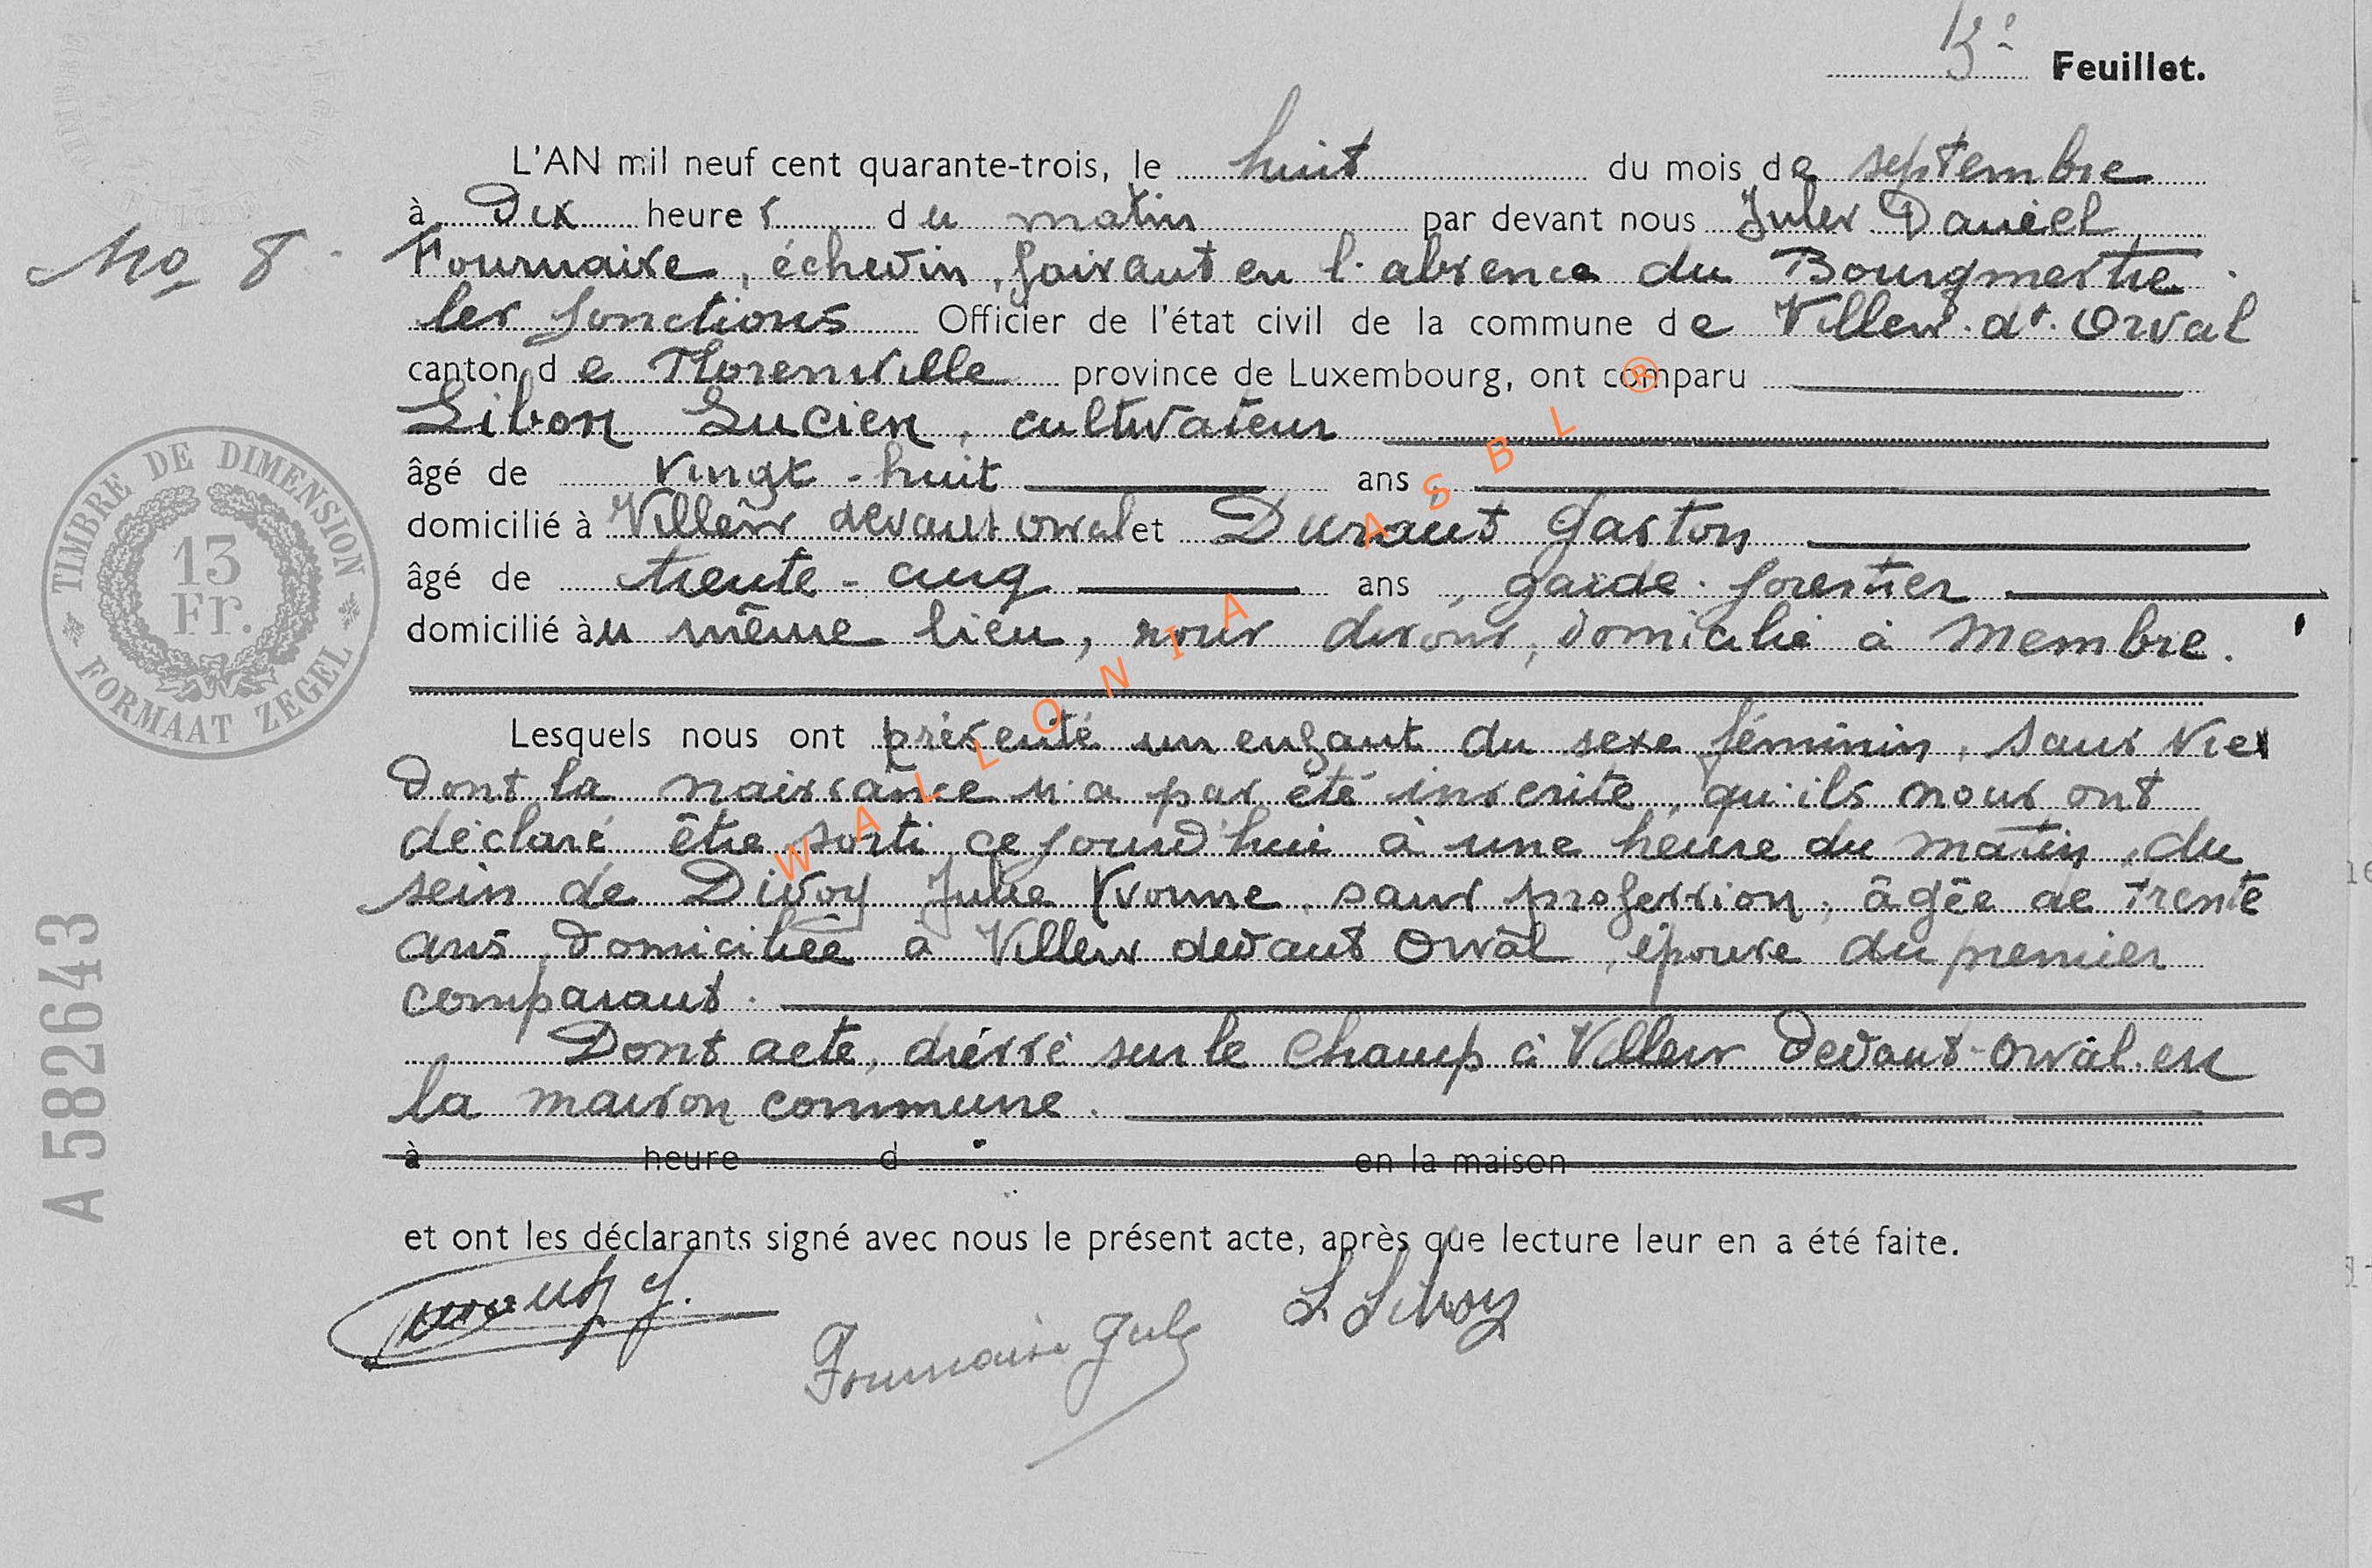 3e Feuillet.
L'AN mil neuf cent quarante-trois, le huit du mois de septembre
à Dix heures du matin par devant nous Jules Daniel
No 8 Fournaise, échevin, faisant en l'absence du Bourgmestre
les fonctions Officier de l'état civil de la commune de Villers. dt. Orval
canton de Florenville province de Luxembourg, ont comparu
Libon Lucien, cultivateur
âgé de vingt-huit ans,
domicilié à Villers devant orval et Durant Gaston
âgé de trente-cinq ans, garde-forestier
domicilié au même lieu, nous disons, domicilié à Membre.
Lesquels nous ont présenté un enfant du sexe féminin, sans vie,
dont la naissance n'a pas été inscrite, qu'ils nous ont
déclaré être sorti ce jourd'hui à une heure du matin, du
sein de Divoy Julie Yvonne, sans profession, âgée de trente
ans, domiciliée à Villers devant Orval, épouse du premier
comparant.
Dont acte, dréssé sur le champ à Villers devant-Orval. en
la maison commune.
à heure d en la maison
et ont les déclarants signé avec nous le présent acte, après que lecture leur en a été faite.
Fournaise Jules
TIMBRE DE DIMENSION
13
Fr.
FORMAAT ZEGEL
A 582643
WALLONIA ASBL ®